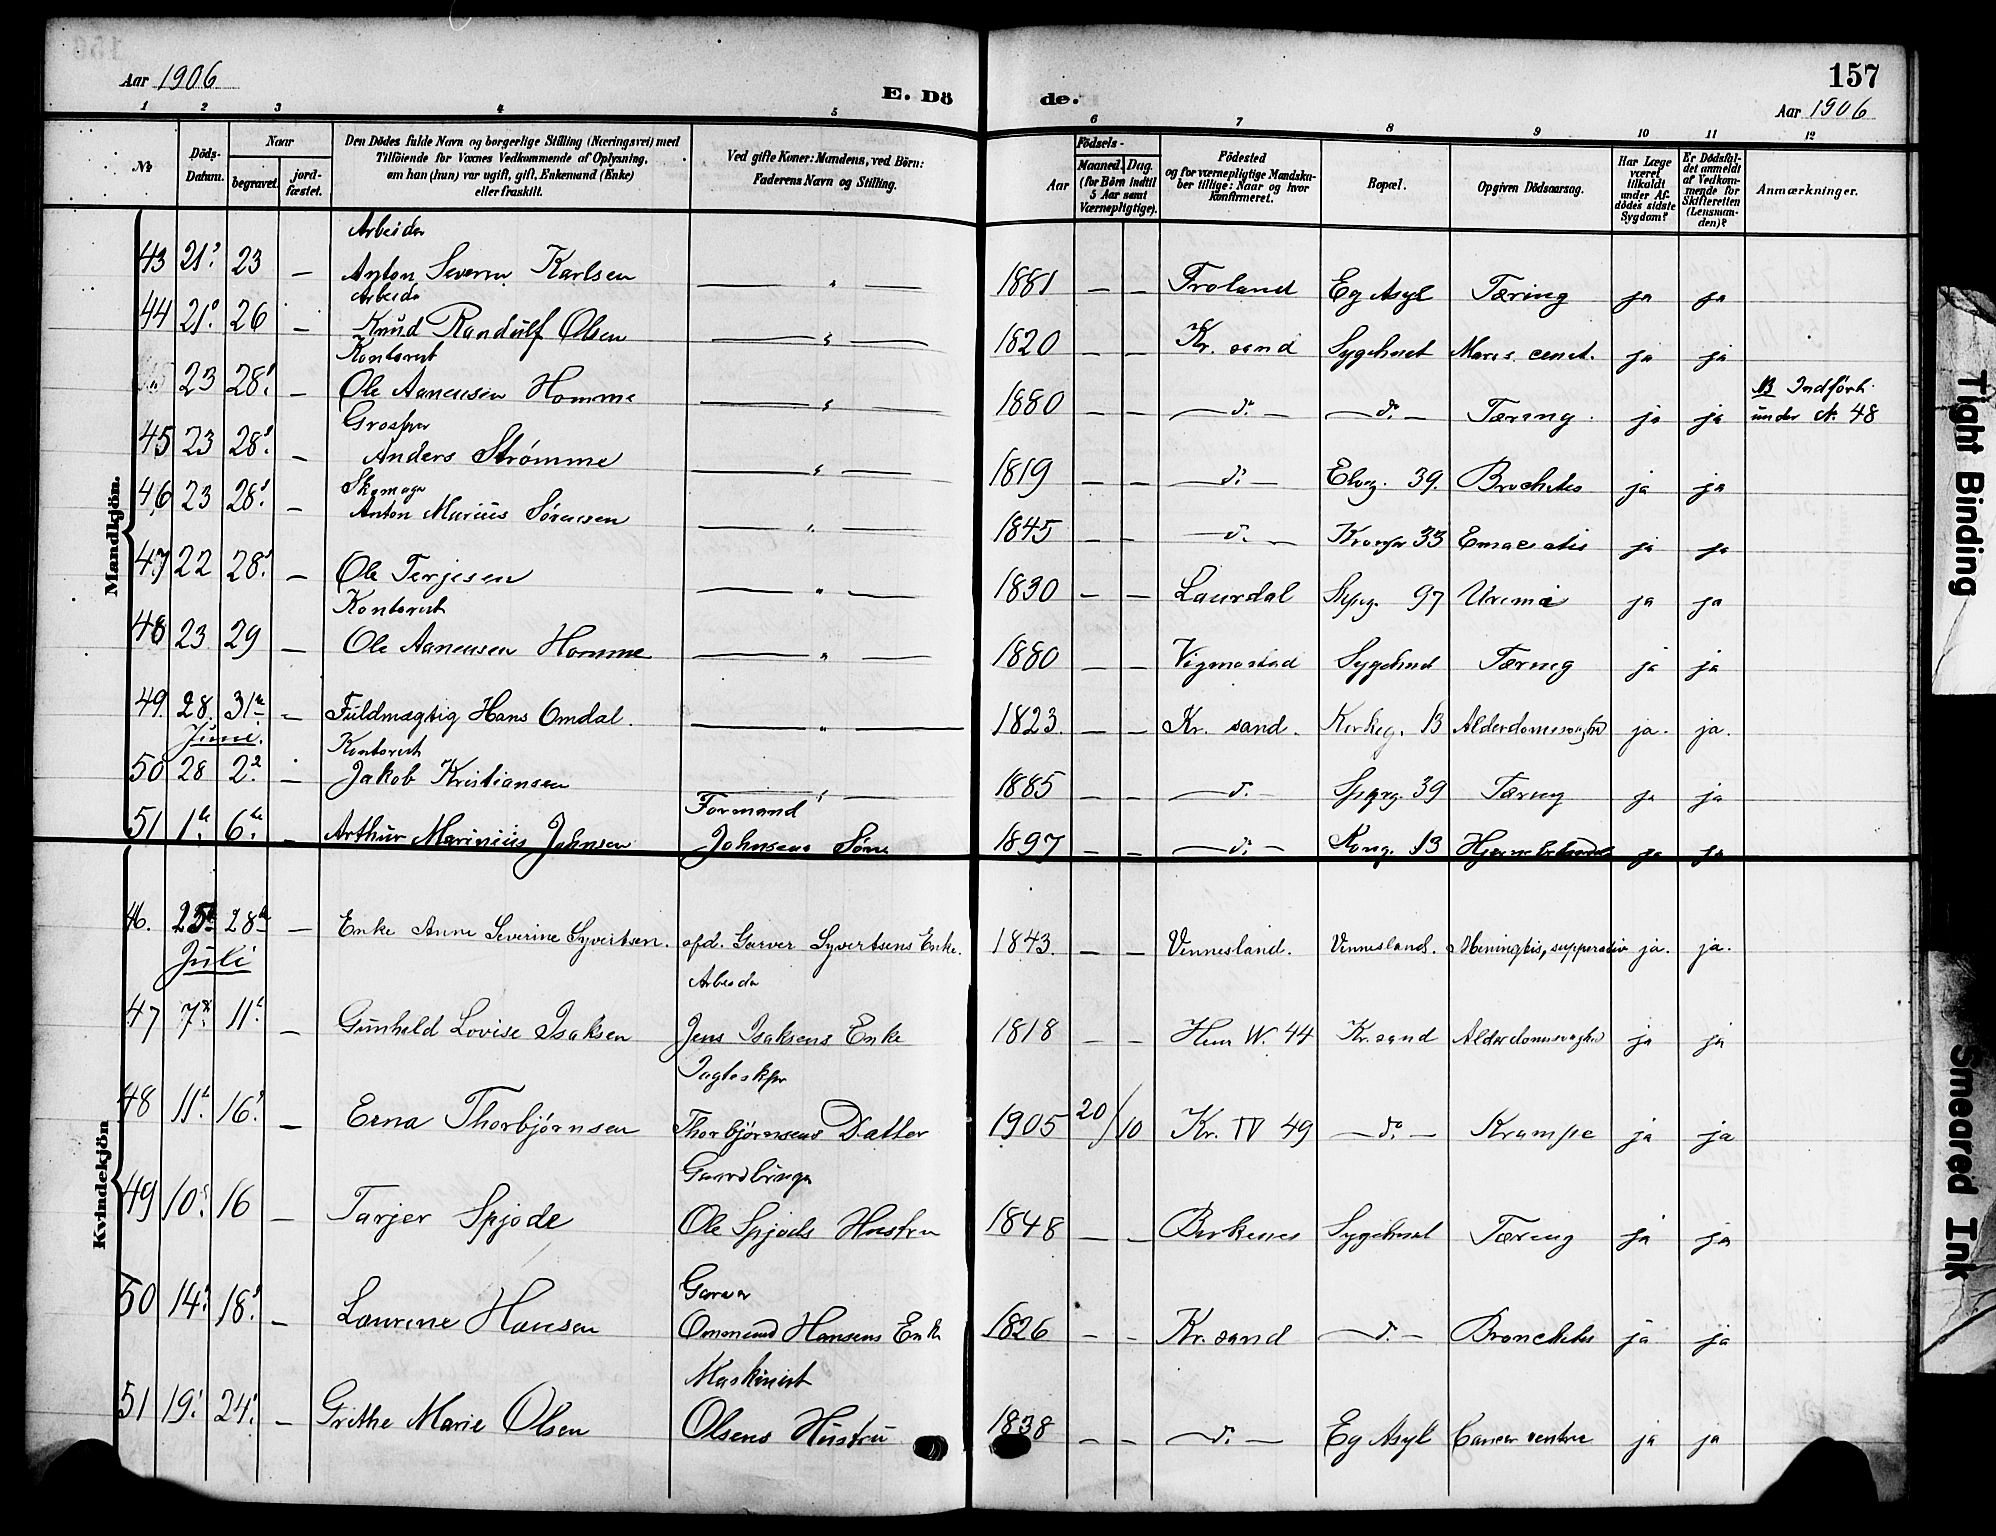 Aar 1906
E. Dö de.
157
Aar 1906
1 2 3 4 5 6 7 8 9 10 11 12
No
Döds-Datum.
Naar begravet. jord-fæstet.
Den Dödes fulde Navn og borgerlige Stilling (Næringsvei) med Tilföiende for Voxnes Vedkommende af Oplysning, om han (hun) var ugift, gift, Enkemand (Enke) eller fraskilt.
Ved gifte Koner: Mandens, ved Börn: Faderens Navn og Stilling.
Födsels-
Aar Maaned. Dag. (for Börn indtil 5 Aar samt Værnepligtige).
Födested og for værnepligtige Mandskaber tillige: Naar og hvor konfirmeret.
Bopæl.
Opgiven Dödsaarsag.
Har Læge været tilkaldt under Afdödes sidste Sygdom?
Er Dödsfaldet anmeldt af Vedkommende for Skifteretten (Lensmanden)?
Anmærkninger.
Mandkjön.
Arbeider
43 21. 23 — Anton Severin Karlsen — " — 1881 — — Froland Eg Asyl Tæring ja ja
Arbeider
44 21. 26 — Knud Randulf Olsen — " — 1820 — — Kr. sand Sygehuset Maras. senil. ja ja
Kontorist
23 28. — Ole Aanensen Homme — " — 1880 — — — d. — — d. — Tæring. ja ja NB Indført under N. 48
45 23 28. — Anders Strømme — " — 1819 — — — d. — Elveg. 39. ja ja
Skomager
46 23 28. — Anton Marius Sørensen — " — 1845 — — — d. — 33 ja ja
47 22 28. — Ole Terjesen — " — 1830 — — Laurdal 97 Uremi ja ja
Kontorist
48 23 29 — Ole Aanensen Homme — " — 1880 — — Vigmostad Sygehuset Tæring ja ja
49. 28. 31te — Fuldmægtig Hans Omdal. — " — 1823. — — Kr. sand. Kirkeg. 13 Alderdomssvaghed ja. ja.
Juni.
Kontorist
50 28 2. — Jakob Kristiansen — " — 1885 — — — d. — 39 Tæring ja ja
Formand
51 1te. 6te. — Arthur Marinius Johnsen Johnsens Søn 1897 — — — d. — Kong. 13 ja ja
Kvindekjön
46. 25te 28de — Enke Anne Severine Syvertsen. afd. Garver Syvertsens Enke. 1843. — — Vennesland. Vennesland. Meningitis, ja. ja.
Juli
Arbeider
47 7de. 11. — Gunhild Lovise Isaksen Jens Isaksens Enke 1818 — — 44 Kr. sand Alderdomssvaghed ja ja
Jagteskpr
48 11. 16. — Erna Thorbjørnsen Thorbjørnsens Datter 1905 20/10 Kr. IV 49 — d. — Krampe ja ja
Gaardbruger
49 10. 16 — Tarjer Spjode Ole Spjods Hustru 1848 — — Birkenes Sygehuset Tæring ja ja
Garver
50 14. 18. — Laurine Hansen Ommund Hansens Enke 1826 — — Kr. sand — d. — Bronchites ja ja
Maskinist
51 19. 24. — Grethe Marie Olsen Olsens Hustru 1838 — — — d. — Eg Asyl Cancer ventric ja ja
Tight Binding
Smeared Ink